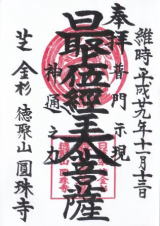 維時平成廿九年十一月十三日
奉拝 普門示現
最上位經王大菩薩
神通之力
芝 金杉 徳聚山 圓珠寺